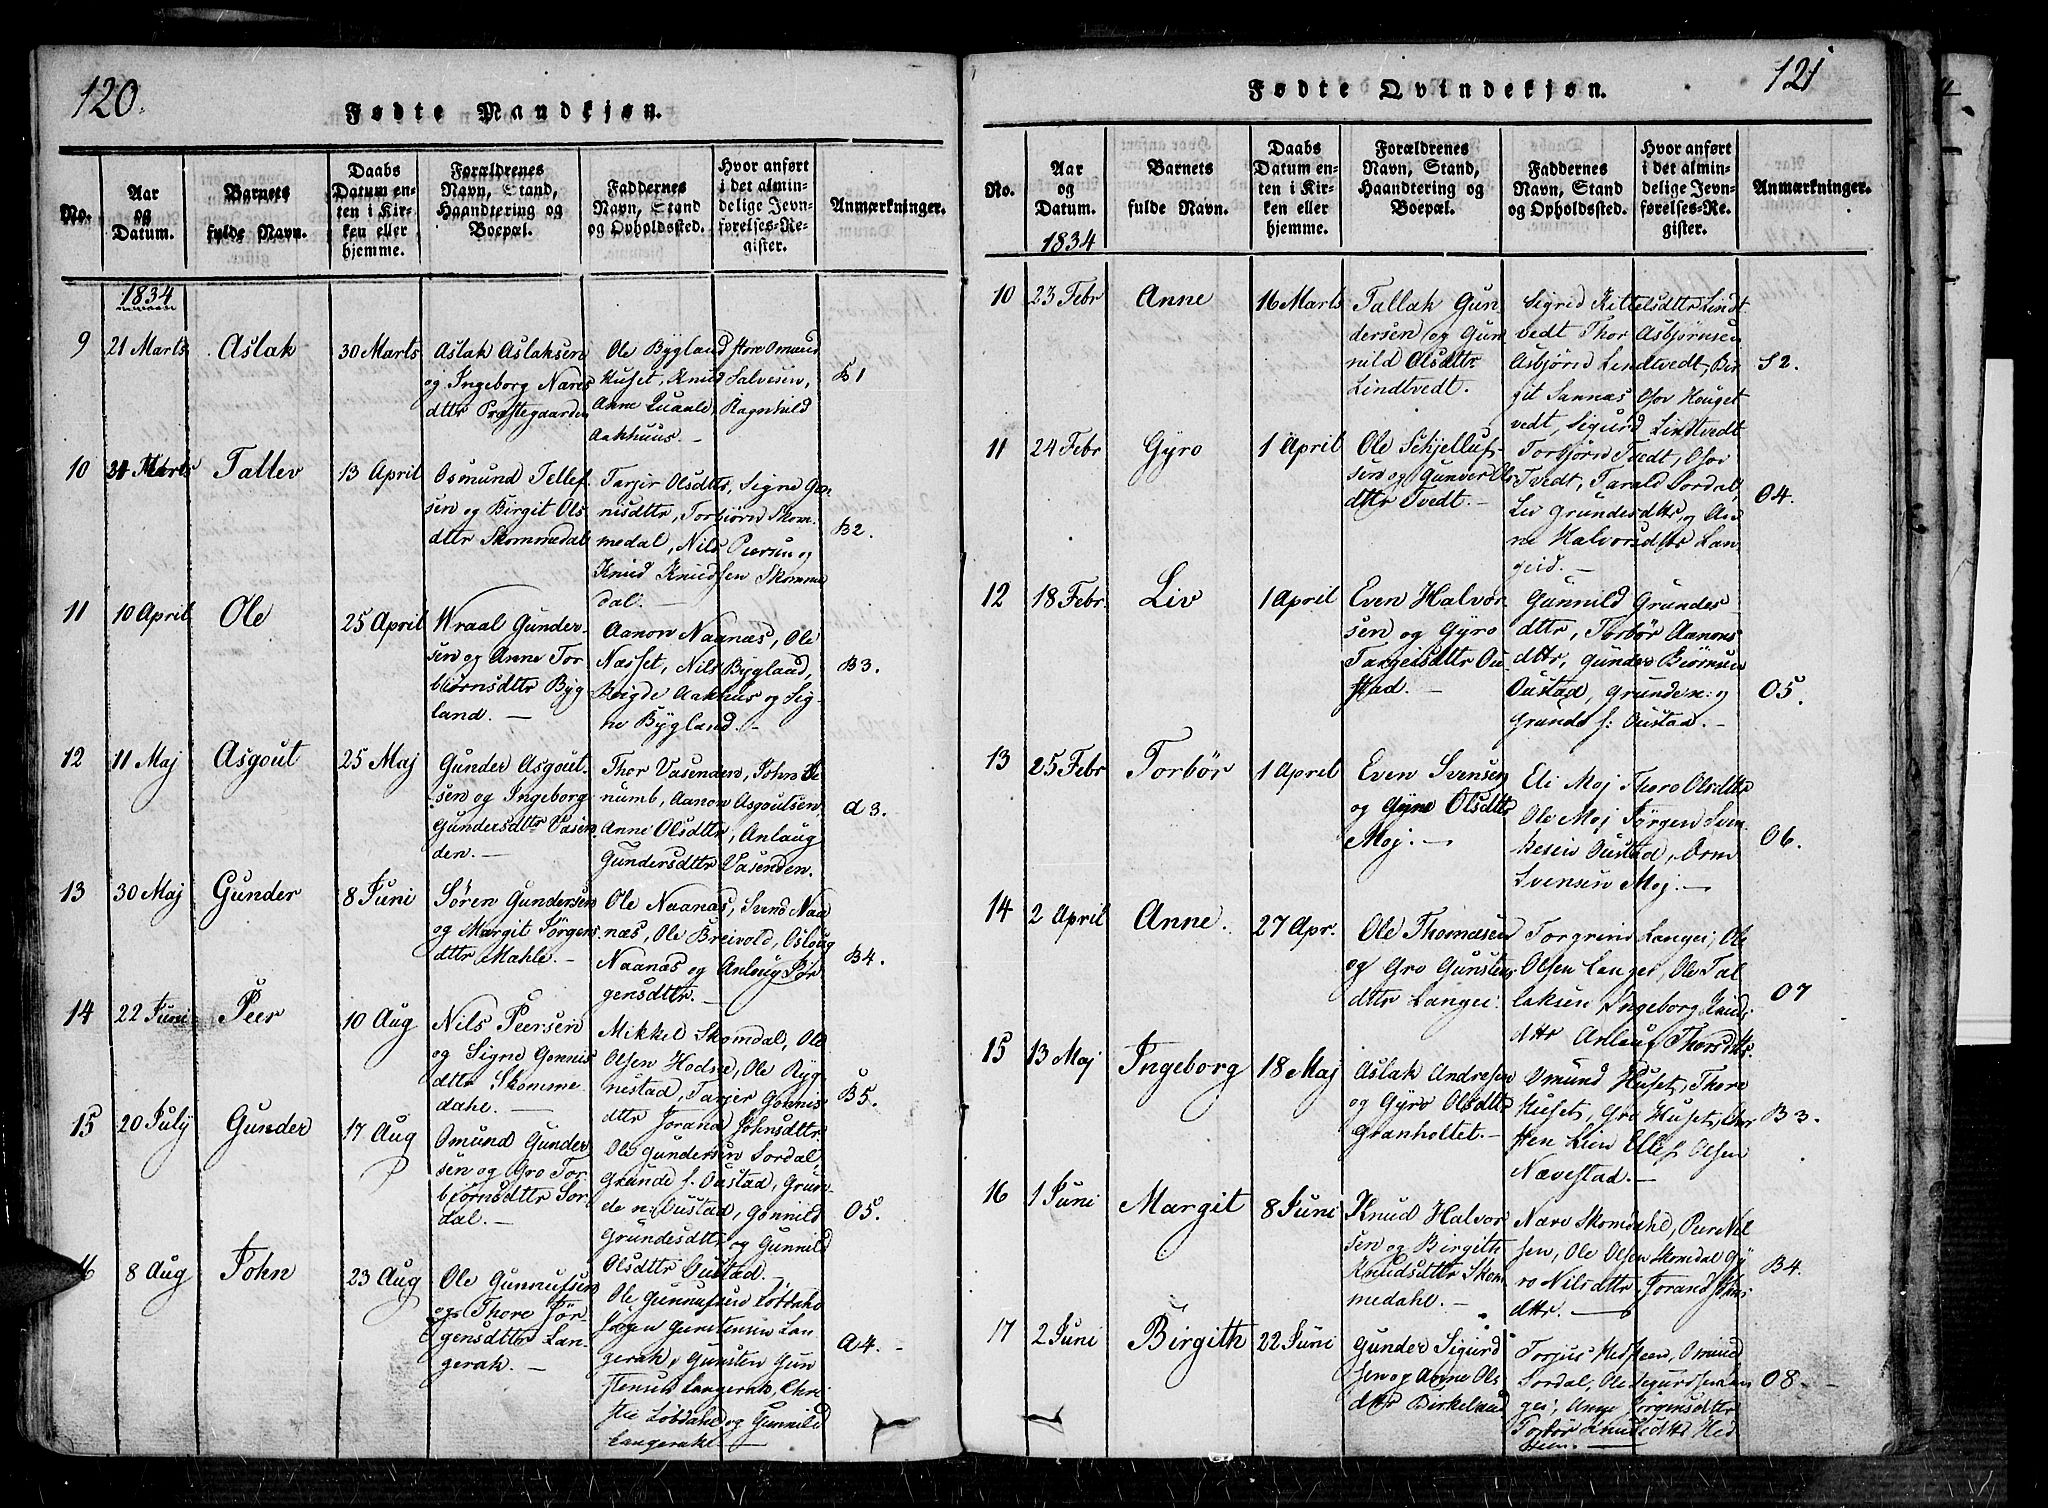 120.
Fødte Mandkjøn.
No.
Aar
og
Datum.
Barnets
fulde Navn.
Daabs
Datum en-
ten i Kir-
ken eller
hjemme.
Forældrenes
Navn, Stand,
Haandtering og
Boepæl.
Faddernes
Navn, Stand
og Opholdssted.
Hvor anført
i det almin-
delige Jevn-
førelses-Re-
gister.
Anmærkninger.
1834
9
21 Marts
Aslak
30 Marts
Aslak Aslaksen
og Ingeborg Nares
dttr Præstegaarden
Ole Bygland Tore Omund
Huset, Knud Salvesen,
Anne Quaale, Ragnhild
Aakhuus. —
B1
10
31 Marts
Tallev
13 April
Osmund Tellef
sen og Birgit Ols
dttr Skommedal
Tarjer Olsdttr, Signe Gon
nisdttr, Torbjörn Skom
medal, Nils Peersen og
Knud Knudsen Skomme
dal. —
B2.
11
10 April
Ole
25 April
Wraal Gunder-
sen og Anne Tor
biörnsdttr Byg
land. —
Aanon Naanæs, Ole
Næsset, Nils Bygland,
Beigde Aakhus og Sig-
ne Bygland. —
B3.
12
11 Maj
Asgout
25 Maj
Gunder Asgout-
sen og Ingeborg
Gundersdttr Vasen
den. —
Thor Vasenden, John
numb, Aanon Asgoutsen,
Anne Olsdttr, Anlaug
Gundersdttr Vasenden.
d3.
13
30 Maj
Gunder
8 Juni
Sören Gundersen
og Margit Jörgens
dttr Mahle. —
Ole Naanæs, Svend Naa
næs, Ole Breivold, Osloug
Naanæs og Anloug Jör
gensdttr. —
B4.
14
22 Juni
Peer
10 Aug
Nils Peersen
og Signe Gonnis
dttr Skomme
dahl. —
Mikkel Skomdal, Ole
Olsen Hodne, Ole Ryg
nestad, Tarjer Gonnis
dttr Jorand Johnsdttr
B5.
15
20 July
Gunder
17 Aug
Omund Gunder
sen og Gro Tor
biörnsdttr Sor
dal. —
Ole Gundersen Sordal,
Grunde s. Oustad, Grun
de n: Oustad, Gonnild
Grundesdttr og Gunnild
Olsdttr Oustad.
O5.
16
8 Aug
John
23 Aug
Ole Gunnufsen
og Thore Jör
gensdttr Lan-
gerak. —
Ole Gunnufsen Löbdahl
Jörgen Gunstensen Lan
gerak, Gunsten Gun
stensen Langerak, Chri
stie Löbdahl og Gunnild
Langerak. —
A4.
121
Fødte Qvindekjøn.
No.
Aar
og
Datum.
1834
Barnets
fulde Navn.
Daabs
Datum en-
ten i Kir-
ken eller
hjemme.
Forældrenes
Navn, Stand,
Haandtering og
Boepæl.
Faddernes
Navn, Stand
og Opholdssted.
Hvor anført
i det almin-
delige Jevn-
førelses-Re-
gister.
Anmærkninger.
10
23 Febr
Anne
16 Marts
Tallak Gun-
dersen og Gun
nild Olsdttr
Lindtvedt.
Sigrid Kittelsdttr Lindt
vedt Thor Asbjörnsen
Asbjörn Lindtvedt, Bir
git Sannæs Osov Houget
vedt, Sigurd Lindtvedt
S2.
11
24 Febr
Gyro
1 April
Ole Schjelluf-
sen og Gunver Ols
dttr Tvedt. —
Torbjörn Tvedt, Osov
Tvedt, Tarald Sordal,
Liv Grundesdttr, og An
ne Halvorsdttr Lan-
geid. —
O4.
12
18 Febr.
Liv
1 April
Even Halvor
sen og Gyro
Targeisdttr Ou
stad. —
Gunnild Grundes
dttr, Torbör Aanons
dttr, Gunder Biörnsen
Oustad, Grunde n: og
Grunde s: Oustad. —
O5.
13
25 Febr
Torbör
1 April
Even Svensen
og Gyne Olsdttr
Moj. —
Eli Moj Thoro Olsdttr
Ole Moj Jörgen Sven
Oustad, Orm
Svensen Moj. —
O6.
14
2 April
Anne.
27 Apr.
Ole Thomasen
og Gro Gunstens
dttr Langei.
Torgrim Langei, Ole
Olsen Langei, Ole Tal
laksen Ingeborg Knuds
dttr Anlaug Thorsdttr.
O7
15
13 Maj
Ingeborg
18 Maj
Aslak Andresen
og Gyro Olsdttr
Granholtet. —
Omund Huset, Thore
Huset, Gro Huset, Thor
sten Lien Ellef Olsen
Nævestad. —
B3.
16
1 Juni
Margit
8 Juni
Knud Halvor
sen og Birgith
Knudsdttr Skom
medahl. —
Nære Skomdahl, Peer Nil
sen, Ole Olsen Skomdal Gy
ro Nilsdttr, Jorand
dttr. —
B4.
17
2 Juni
Birgith
22 Juni
Gunder Sigurd
sen og Anne Ols
dttr Birkeland
Torjus Hedsteen, Omund
Sordal, Ole Sigurdsen Lan
gei, Anne Jörgensdttr
Torbör Knudsdttr Hed
steen. —
O8